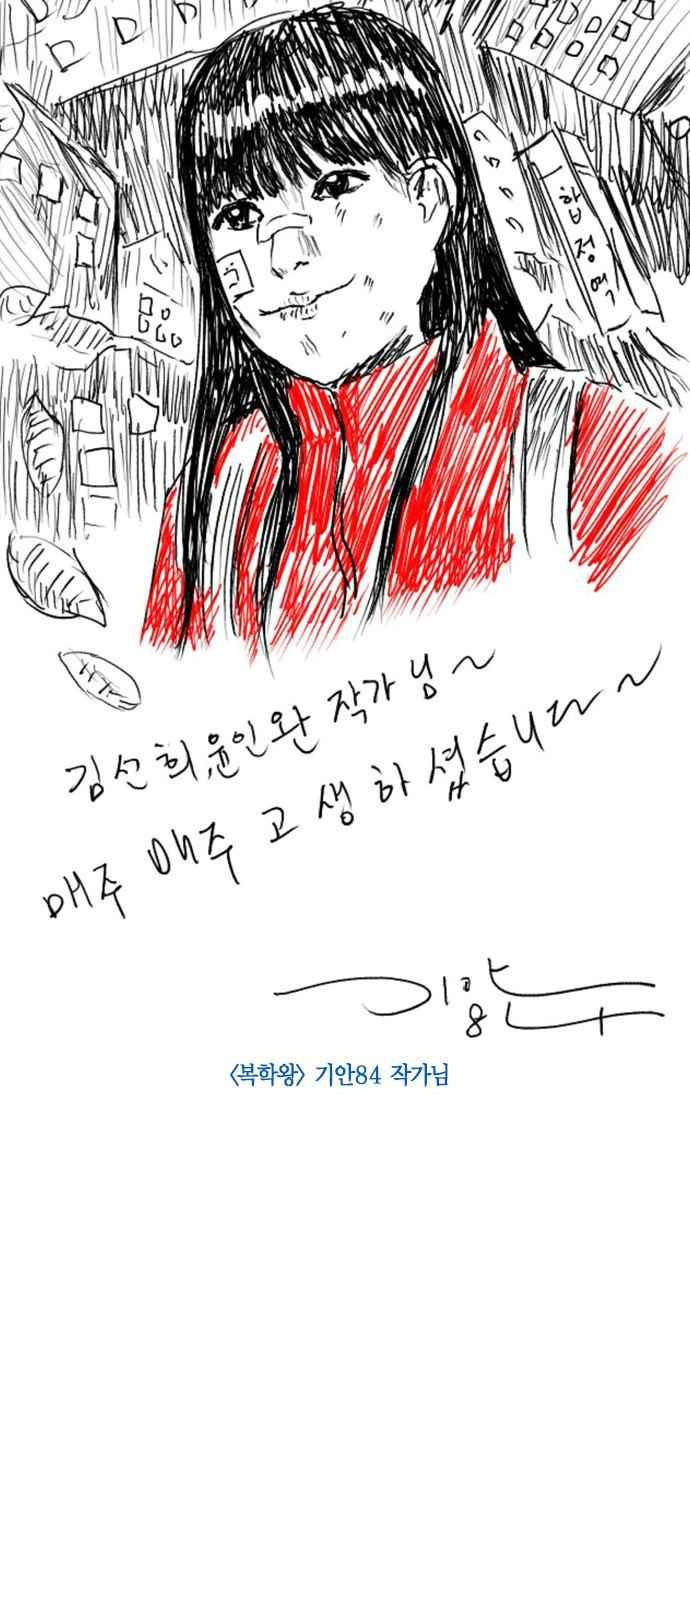 합정역
김선희, 윤인완 작가님~
매주 매주 고생하셨습니다~
기안84
<복학왕> 기안84 작가님